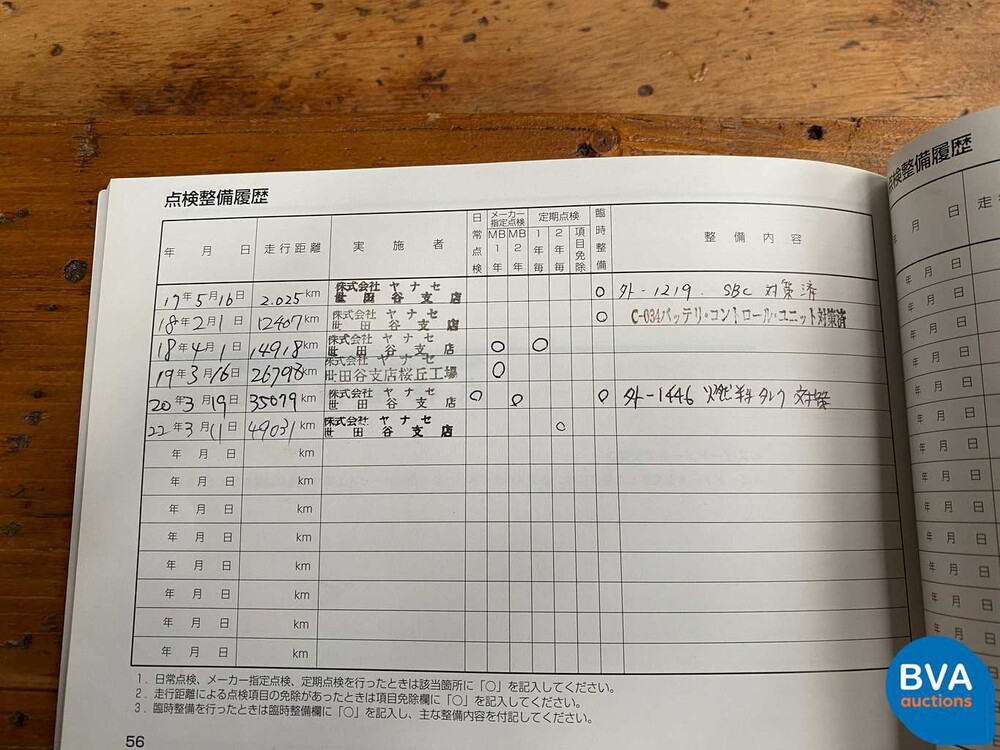 点検整備履歴
年 月 日 走行距離 実施者 日常点検 メーカー指定点検 MB1年 MB2年 定期点検 1年毎 2年毎 項目免除 臨時整備 整備内容
17年5月16日 2.025km 株式会社 ヤナセ 世田谷支店 ○ 外-1219. SBC 対策済
18年2月1日 12407km 株式会社 ヤナセ 世田谷支店 ○ C-034バッテリ・コントロール・ユニット対策済
18年4月1日 14918km 株式会社 ヤナセ 世田谷支店 ○ ○
19年3月16日 26798km 株式会社 ヤナセ 世田谷支店桜丘工場 ○
20年3月19日 35079km 株式会社 ヤナセ 世田谷支店 ○ ○ ○ 外-1446 燃料タンク
22年3月11日 49031km 株式会社 ヤナセ 世田谷支店 ○
年 月 日 km
年 月 日 km
年 月 日 km
年 月 日 km
年 月 日 km
年 月 日 km
年 月 日 km
年 月 日 km
1. 日常点検、メーカー指定点検、定期点検を行ったときは該当箇所に「○」を記入してください。
2. 走行距離による点検項目の免除があったときは項目免除欄に「○」を記入してください。
3. 臨時整備を行ったときは臨時整備欄に「○」を記入し、主な整備内容を付記してください。
56
点検整備履歴
年 月 日 走
年 月 日
年 月 日
年 月 日
年 月 日
年 月 日
年 月 日
年 月 日
年 月 日
年 月 日
年 月 日
年 月 日
年 月 日
BVA
auctions